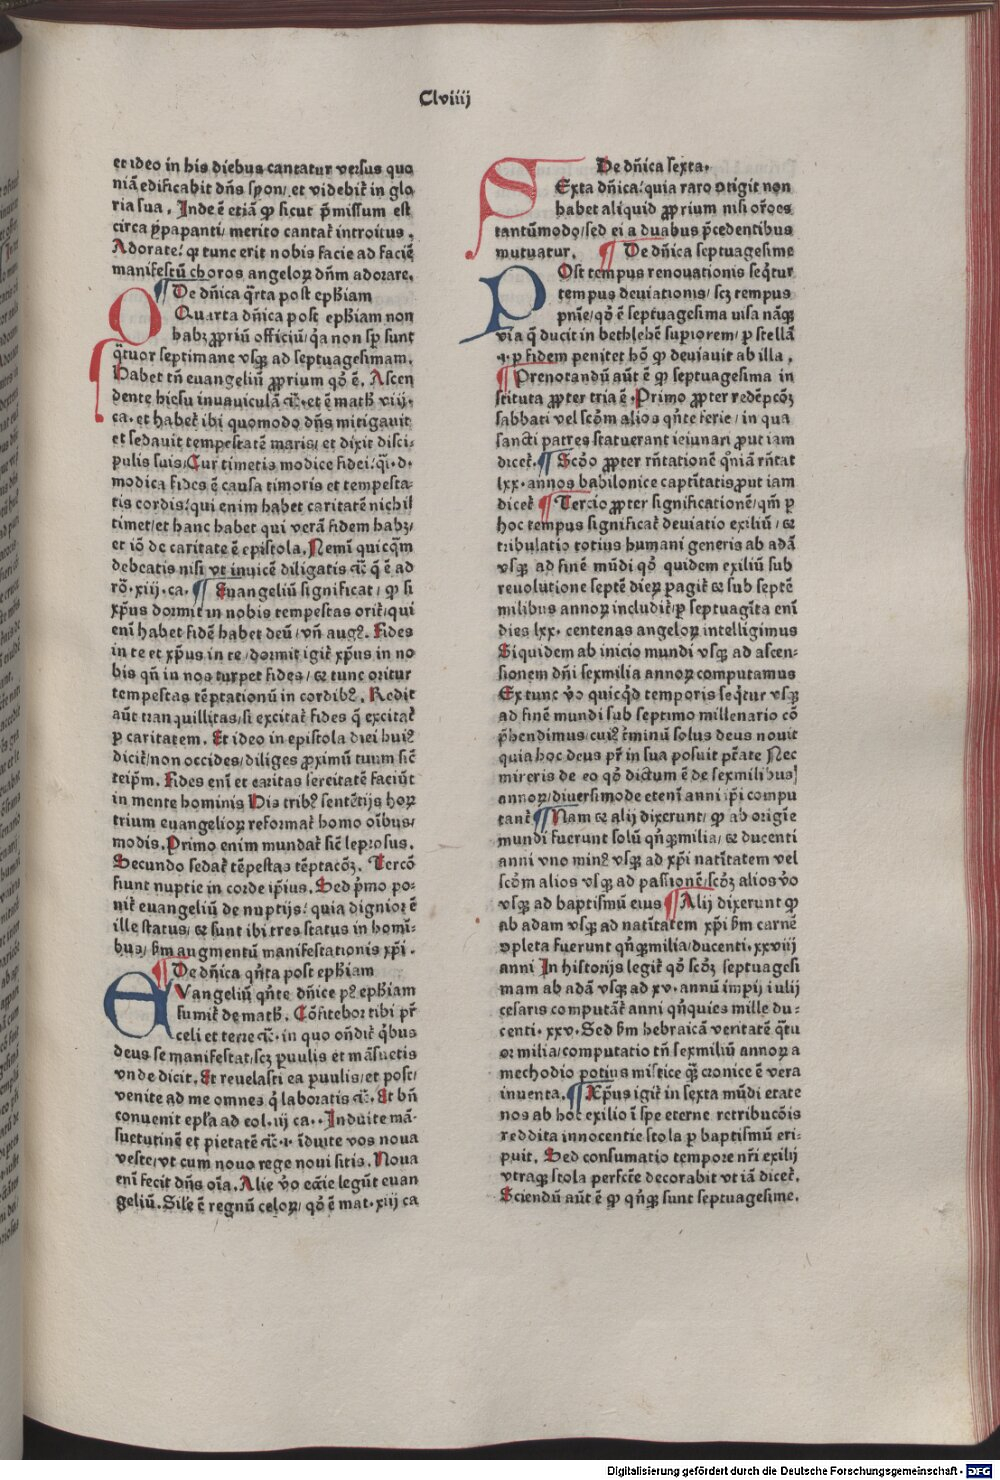 Clviiij
et ideo in his diebus cantatur versus quo
niā edificabit dn̄s syon/ et videbit̄ in glo
ria sua. Inde ē etiā ꝙ sicut p̄missum est
circa ypapanti/ merito cantat̄ introitus.
Adorate: ꝙ tunc erit nobis facie ad faciē
manifestū choros angeloꝝ dn̄m adorare.
¶ De dn̄ica q̄rta post eph̄iam
Quarta dn̄ica post eph̄iam non
habꝫ ꝓpriū officiū/ q̄a non sp̄ sunt
q̄tuor septimane vsqꝫ ad septuagesimam.
Habet tn̄ euangeliū ꝓprium qd̄ ē. Ascen
dente hiesu in nauiculā ⁊c̄. et ē math̄ viij.
ca. et habet̄ ibi quomodo dn̄s mitigauit
et sedauit tempestatē maris/ et dixit disci-
pulis suis/ Cur timetis modice fidei/ q̄i. d.
modica fides ē causa timoris et tempesta-
tis cordis/ qui enim habet caritatē nichil
timet/ et hanc habet qui verā fidem habꝫ/
et iō de caritate ē epistola. Nemī quicq̄m
debeatis nisi vt inuicē diligatis ⁊c̄ q̄ ē ad
rō. xiij. ca. ¶ Euangeliū significat/ ꝙ si
xp̄us dormit in nobis tempestas orit̄/ qui
enī habet fidē habet deū/ vn̄ augꝰ. Fides
in te et xp̄us in te/ dormit igit̄ xp̄us in no
bis qn̄ in nos turpet fides/ ⁊ tunc oritur
tempestas tēptationū in cordibꝰ. Redit
aūt tranquillitas/ si excitat̄ fides q̄ excitat̄
ꝑ caritatem. Et ideo in epistola diei huiꝰ
dicit̄/ non occides/ diliges ꝓximū tuum sic̄
teip̄m. Fides enī et caritas serēitatē faciūt
in mente hominis His tribꝰ sentētijs hoꝝ
trium euangelioꝝ reformat̄ homo oībus/
modis. Primo enim mundat̄ sic̄ leprosus.
Secundo sedat̄ tēpestas tēptacōꝫ. Tercō
fiunt nuptie in corde ip̄ius. Sed p̄mo po-
nit̄ euangeliū de nuptijs: quia dignior ē
ille status/ ⁊ sunt ibi tres status in homī-
bus/ sm̄ augmentū manifestationis xp̄i.
¶ De dn̄ica qn̄ta post eph̄iam
Euangeliū qn̄te dn̄ice pꝰ eph̄iam
sumit̄ de math̄. Cōfitebor tibi pr̄
celi et terre ⁊c̄. in quo on̄dit̄ q̄bus
deus se manifestat/ scꝫ ꝑuulis et māsuetis
vnde dicit. Et reuelasti ea ꝑuulis/ et post/
venite ad me omnes q̄ laboratis ⁊c̄. Et bn̄
conuenit epl̄a ad col. iij ca.. Induite mā-
suetutinē et pietatē ⁊c̄. i. īduite vos noua
veste/ vt cum nouo rege noui sitis. Noua
enī fecit dn̄s oīa. Alie v̄o ecc̄ie legūt euan
geliū. Sil̄e ē regnū celoꝝ/ qd̄ ē mat. xiij ca
De dn̄ica sexta.
Sexta dn̄ica: quia raro ↄtigit non
habet aliquid ꝓprium nisi or̄oēs
tantūmodo/ sed ei a duabus p̄cedentibus
mutuatur. ¶ De dn̄ica septuagesime
Post tempus renouationis seq̄tur
tempus deuiationis/ scꝫ tempus
pn̄ie/ qd̄ ē septuagesima visa nāqꝫ
via q̄ ducit in bethleh̄ē supiorem/ ꝑ stellā
.i. ꝑ fidem penitet hō ꝙ deuiauit ab illa.
¶ Prenotandū aūt ē ꝙ septuagesima in
stituta ꝓpter tria ē. Primo ꝓpter redēpcōꝫ
sabbati vel scd̄m alios qn̄te ferie/ in qua
sancti patres statuerant ieiunari ꝓut iam
dicet̄. ¶ Scd̄o ꝓpter rn̄tationē qn̄iā rn̄tat
lxx. annos babilonice captītatis ꝓut iam
dicet̄ ¶ Tercio ꝓpter significationē/ qm̄ ꝑ
hoc tempus significat̄ deuiatio exiliū/ ⁊
tribulatio totius humani generis ab adā
vsqꝫ ad finē mūdi qd̄ quidem exiliū sub
reuolutione septē dieꝝ ꝑagit̄ ⁊ sub septē
milibus annoꝝ includit̄/ ꝑ septuagīta enī
dies lxx. centenas angeloꝝ intelligimus
Siquidem ab inicio mundi vsqꝫ ad ascen-
sionem dn̄i sexmilia annoꝝ computamus
Ex tunc v̄o quicq̄d temporis seq̄tur vsqꝫ
ad finē mundi sub septimo millenario cō
p̄hendimus/ cuiꝰ t̄minū solus deus nouit
quia hoc deus pr̄ in sua posuit p̄tate Nec
mireris de eo qd̄ dictum ē de sexmilibus
annoꝝ/ diuersimode etenī anni ip̄i compu
tant̄ ¶ Nam ⁊ alij dixerunt/ ꝙ ab origīe
mundi fuerunt solū qn̄qꝫmilia/ ⁊ ducenti
anni vno minꝰ vsqꝫ ad xp̄i natītatem vel
scd̄m alios vsqꝫ ad passionē/ scd̄ꝫ alios v̄o
vsqꝫ ad baptismū eius ¶ Alij dixerunt ꝙ
ab adam vsqꝫ ad natītatem xp̄i sm̄ carnē
ↄpleta fuerunt qn̄qꝫmilia/ ducenti. xxviij
anni In historijs legit̄ qd̄ scd̄ꝫ septuagesi
mam ab adā vsqꝫ ad xv. annū impij iulij
cesaris computāt̄ anni qn̄quies mille du-
centi. xxv. Sed sm̄ hebraicā veritatē q̄tu
or milia/ computatio tn̄ sexmiliū annoꝝ a
mechodio potius mistice q̄ꝫ cronice ē vera
inuenta. ¶ Xp̄us igit̄ in sexta mūdi etate
nos ab hoc exilio ī spe eterne retribucōis
reddita innocentie stola ꝑ baptismū eri-
puit. Sed consumatio tempore nr̄i exilij
vtraqꝫ stola perfcte decorabit vt iā dicet̄.
Sciendū aūt ē ꝙ qn̄qꝫ sunt septuagesime.
Digitalisierung gefördert durch die Deutsche Forschungsgemeinschaft - DFG